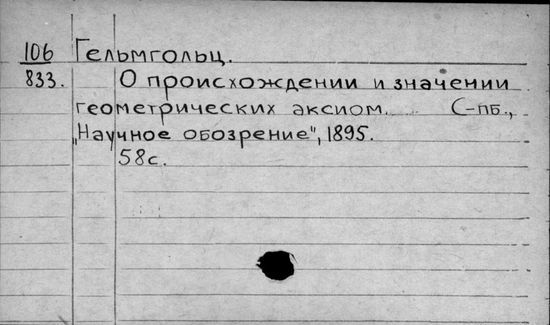 106 Гельмгольц.
833. О происхождении и значении
геометрических аксиом. С-пб.,
"Научное обозрение", 1895.
58с.